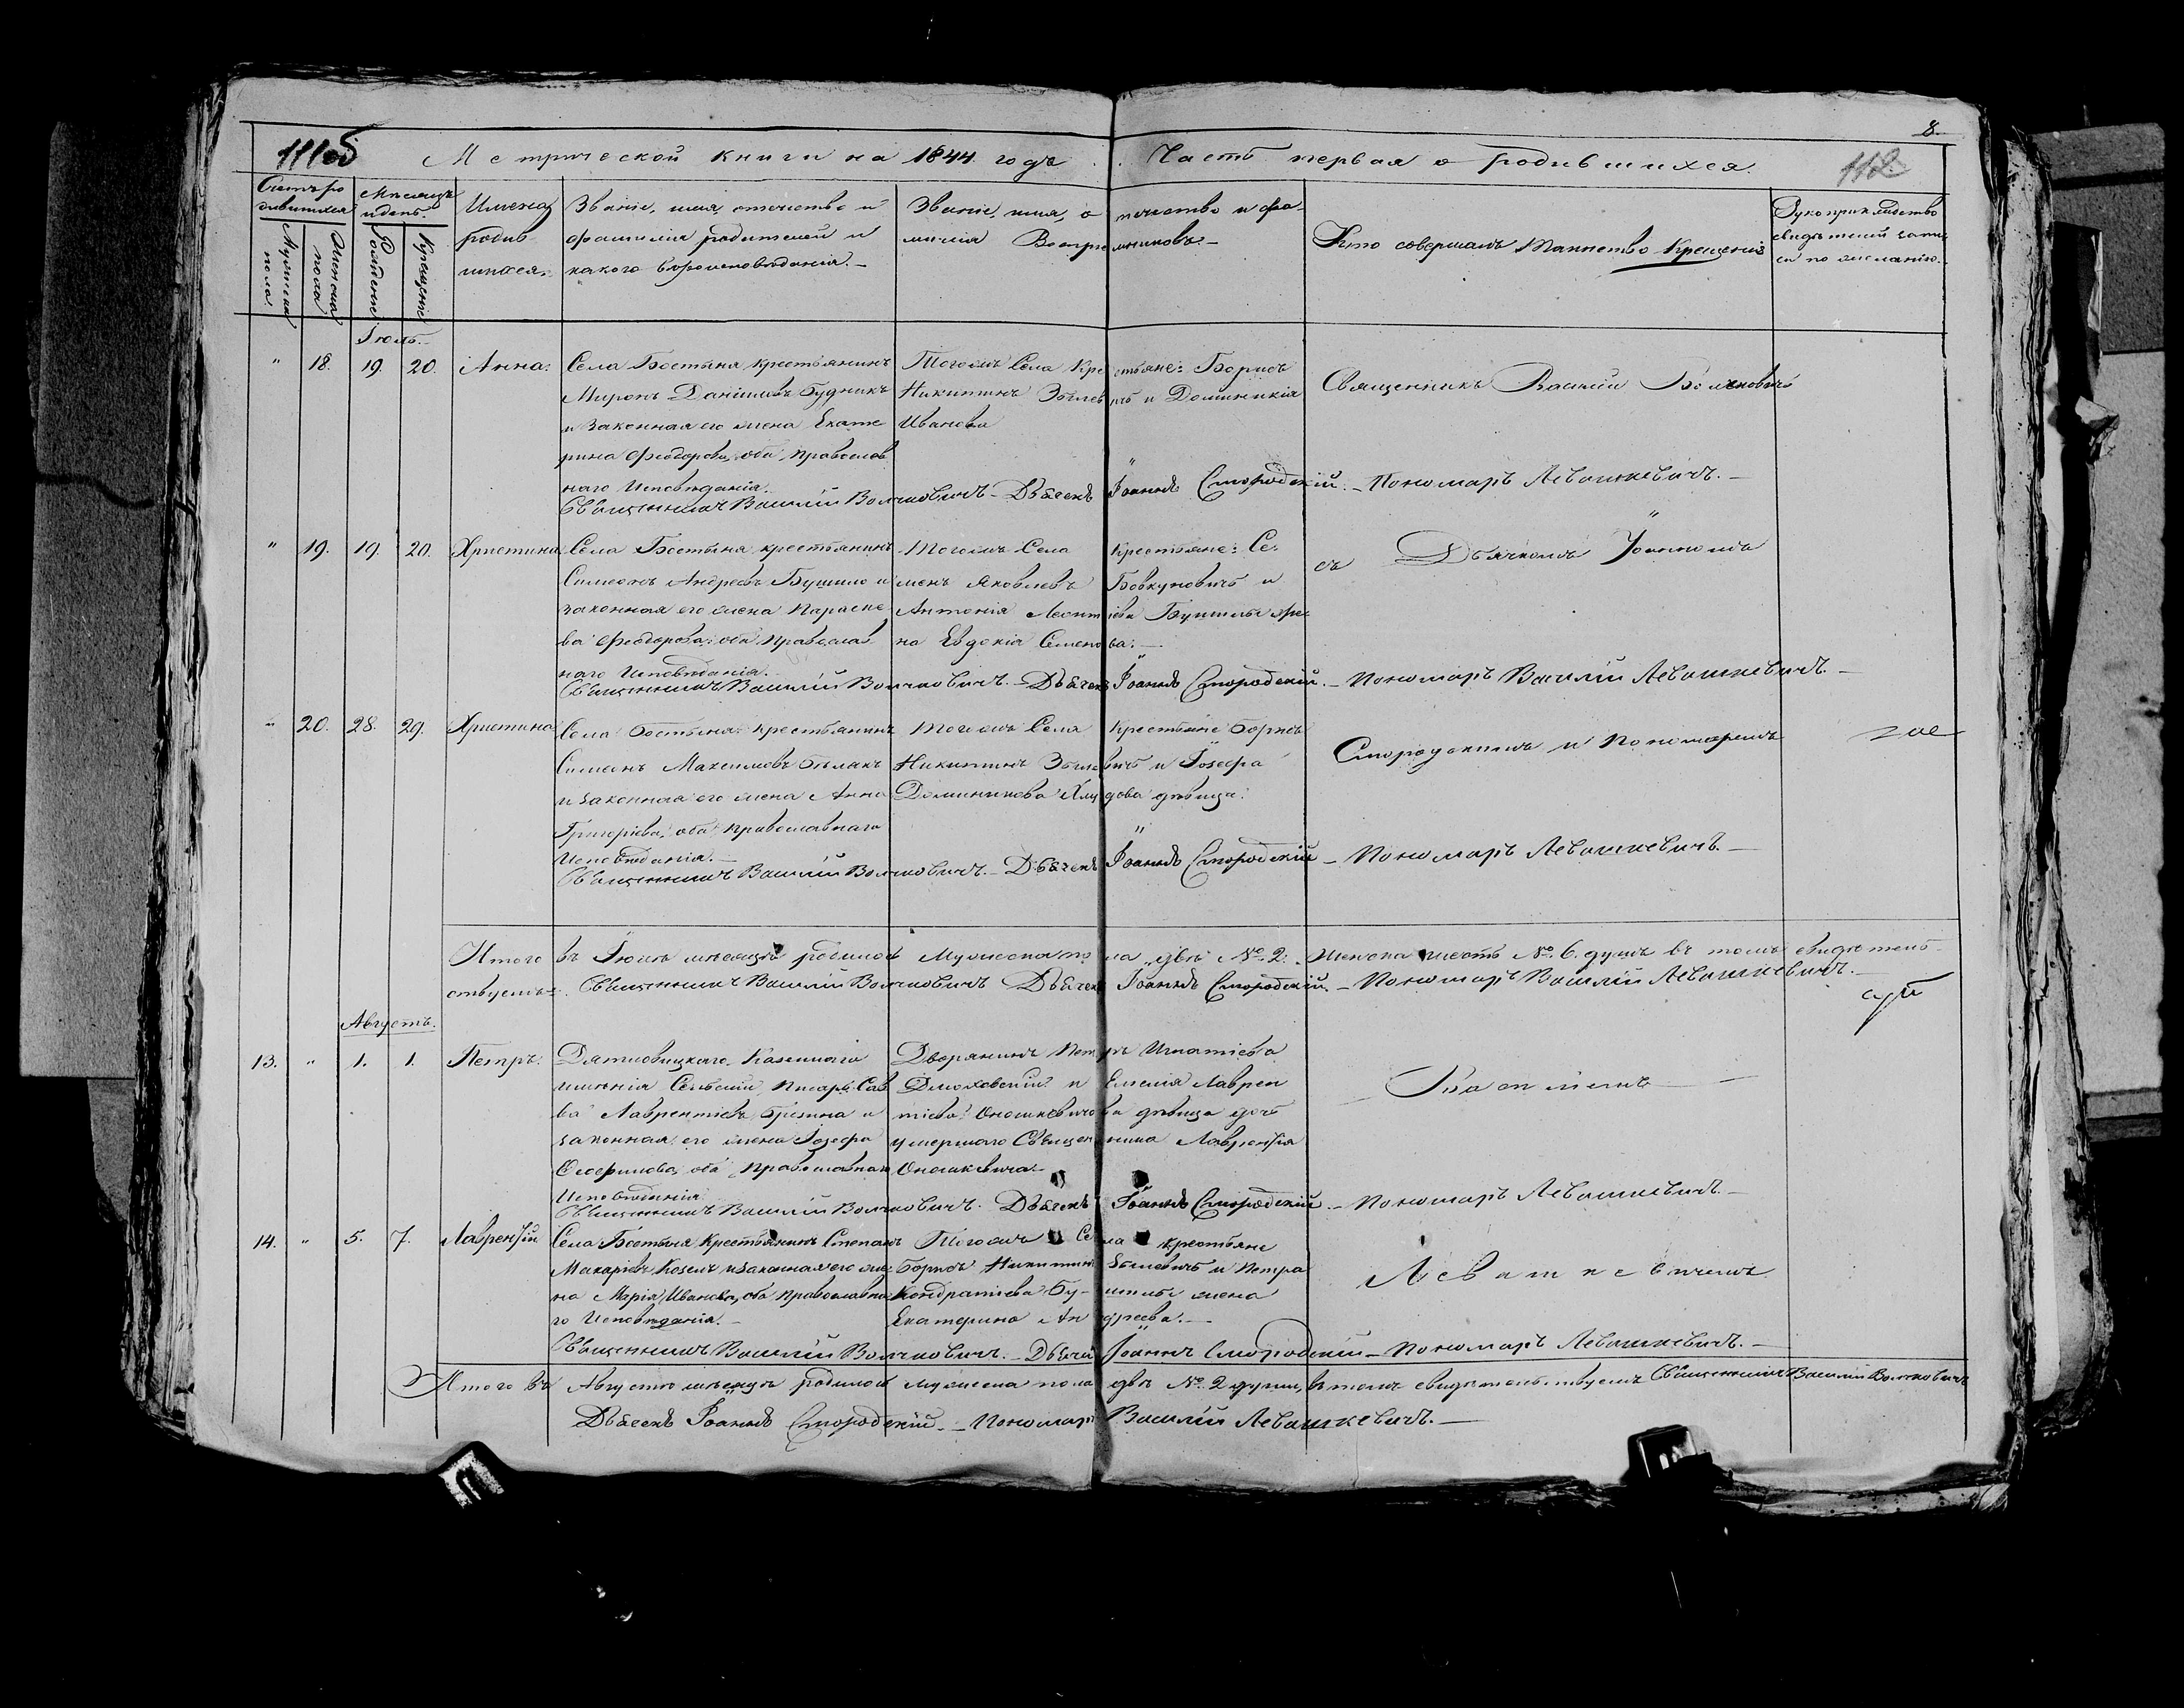 8.
111об Метрической книги на 1844 годъ Часть первая о родившихся. 112
Счетъ родившихся
Мужеска пола.
Женска пола
Мѣсяцъ и день.
Рожденіе
Крещеніе
Имена родив
шихся.
Званіе, имя, отечество и
фамилія родителей и
какого вѣроисповѣданія.
Званіе, имя, отечество и фа-
милія Воспріемниковъ.
Кто совершалъ Таинство Крещенія
Рукоприкладство
свидѣтелей запи
си по желанію.
Іюль.
" 18. 19. 20. Анна.
Села Бостыня крестьянинъ
Миронъ Даніиловъ Будникъ
и законная его жена Екате
рина Феодорова, оба православ
наго Исповѣданія.
Тогожъ Села Крестьяне: Борисъ
Никитинъ и Доминикія
Иванова
Священникъ Василій Волчковичъ
Священникъ Василій Волчковичъ - Дьячекъ Іоаннъ Смородскій. - Пономарь Левашкевичъ. -
" 19. 19. 20. Христина
Села Бостыня крестьянинъ
Симеонъ Андреевъ Бушило и
законная его жена Параске
ва Феодорова: оба православ
наго Исповѣданія.
Тогожъ Села Крестьяне: Се-
менъ Яковлевъ Бовкуновичъ и
Антонія Леонтіева Бушилы же-
на Евдокія Семенова. -
съ Дьячкомъ Іоанномъ
Священникъ Василій Волчковичъ. - Дьячекъ Іоаннъ Смородскій. - Пономарь Василій Левашкевичъ. -
" 20. 28. 29. Христина
Села Бостыня крестьянинъ
Симеонъ Бѣлакъ
и законная его жена Анна
Григоріева, оба православнаго
Исповѣданія. -
Тогожъ Села Крестьяне Борисъ
Никитинъ и Іозефа
Доминикова дѣвица.
Смородскимъ и Пономаремъ
Священникъ Василій Волчковичъ. - Дьячекъ Іоаннъ Смородскій - Пономарь Левашкевичъ. -
Итого въ Іюлѣ мѣсяцѣ родилось Мужеска пола двѣ №. 2. Женска шесть №. 6. душъ въ томъ свидѣтель-
ствуемъ. Священникъ Василій Волчковичъ Дьячекъ Іоаннъ Смородскій. - Пономарь Василій Левашкевичъ. -
Августъ.
13. " 1. 1. Петръ.
Казеннаго
имѣнія Сельскій Писарь Сав
ва Лаврентіевъ и
законная его жена Іозефа
оба Православнаго
Исповѣданія
Дворянинъ Петръ Игнатіева
и Емелія Лаврен
тіева Оношкевичова дѣвица дочь
умершаго Священника Лаврентія
Оношкевича. -
Василіемъ
Священникъ Василій Волчковичъ. Дьячекъ Іоаннъ Смородскій - Пономарь Левашкевичъ. -
14. " 5. 7. Лаврентій
Села Бостыня Крестьянинъ Степанъ
Макаріевъ Козелъ и законная его же-
на Марія Иванова, оба православна
го Исповѣданія. -
Тогожъ Села крестьяне
Борисъ Никитинъ и Петра
Кондратіева Бу-шилы жена
Екатерина Андреева. -
Левашкевичемъ
Священникъ Василій Волчковичъ. - Дьячекъ Іоаннъ Смородскій - Пономарь Левашкевичъ. -
Итого въ Августѣ мѣсяцѣ родилось мужеска пола двѣ №. 2 души, въ томъ свидѣтельствуемъ Священникъ Василій Волчковичъ
Дьячекъ Іоаннъ Смородскій. - Пономарь Василій Левашкевичъ. -